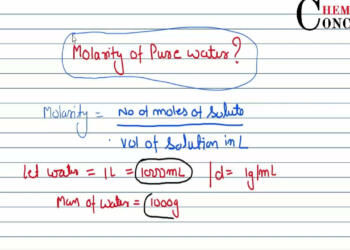 CHEM
CONC
Molarity of Pure water?
Molarity = No of moles of Solute
Vol of Solution in L
Let water = 1L = 1000mL | d = 1g/mL
Mass of water = 1000g